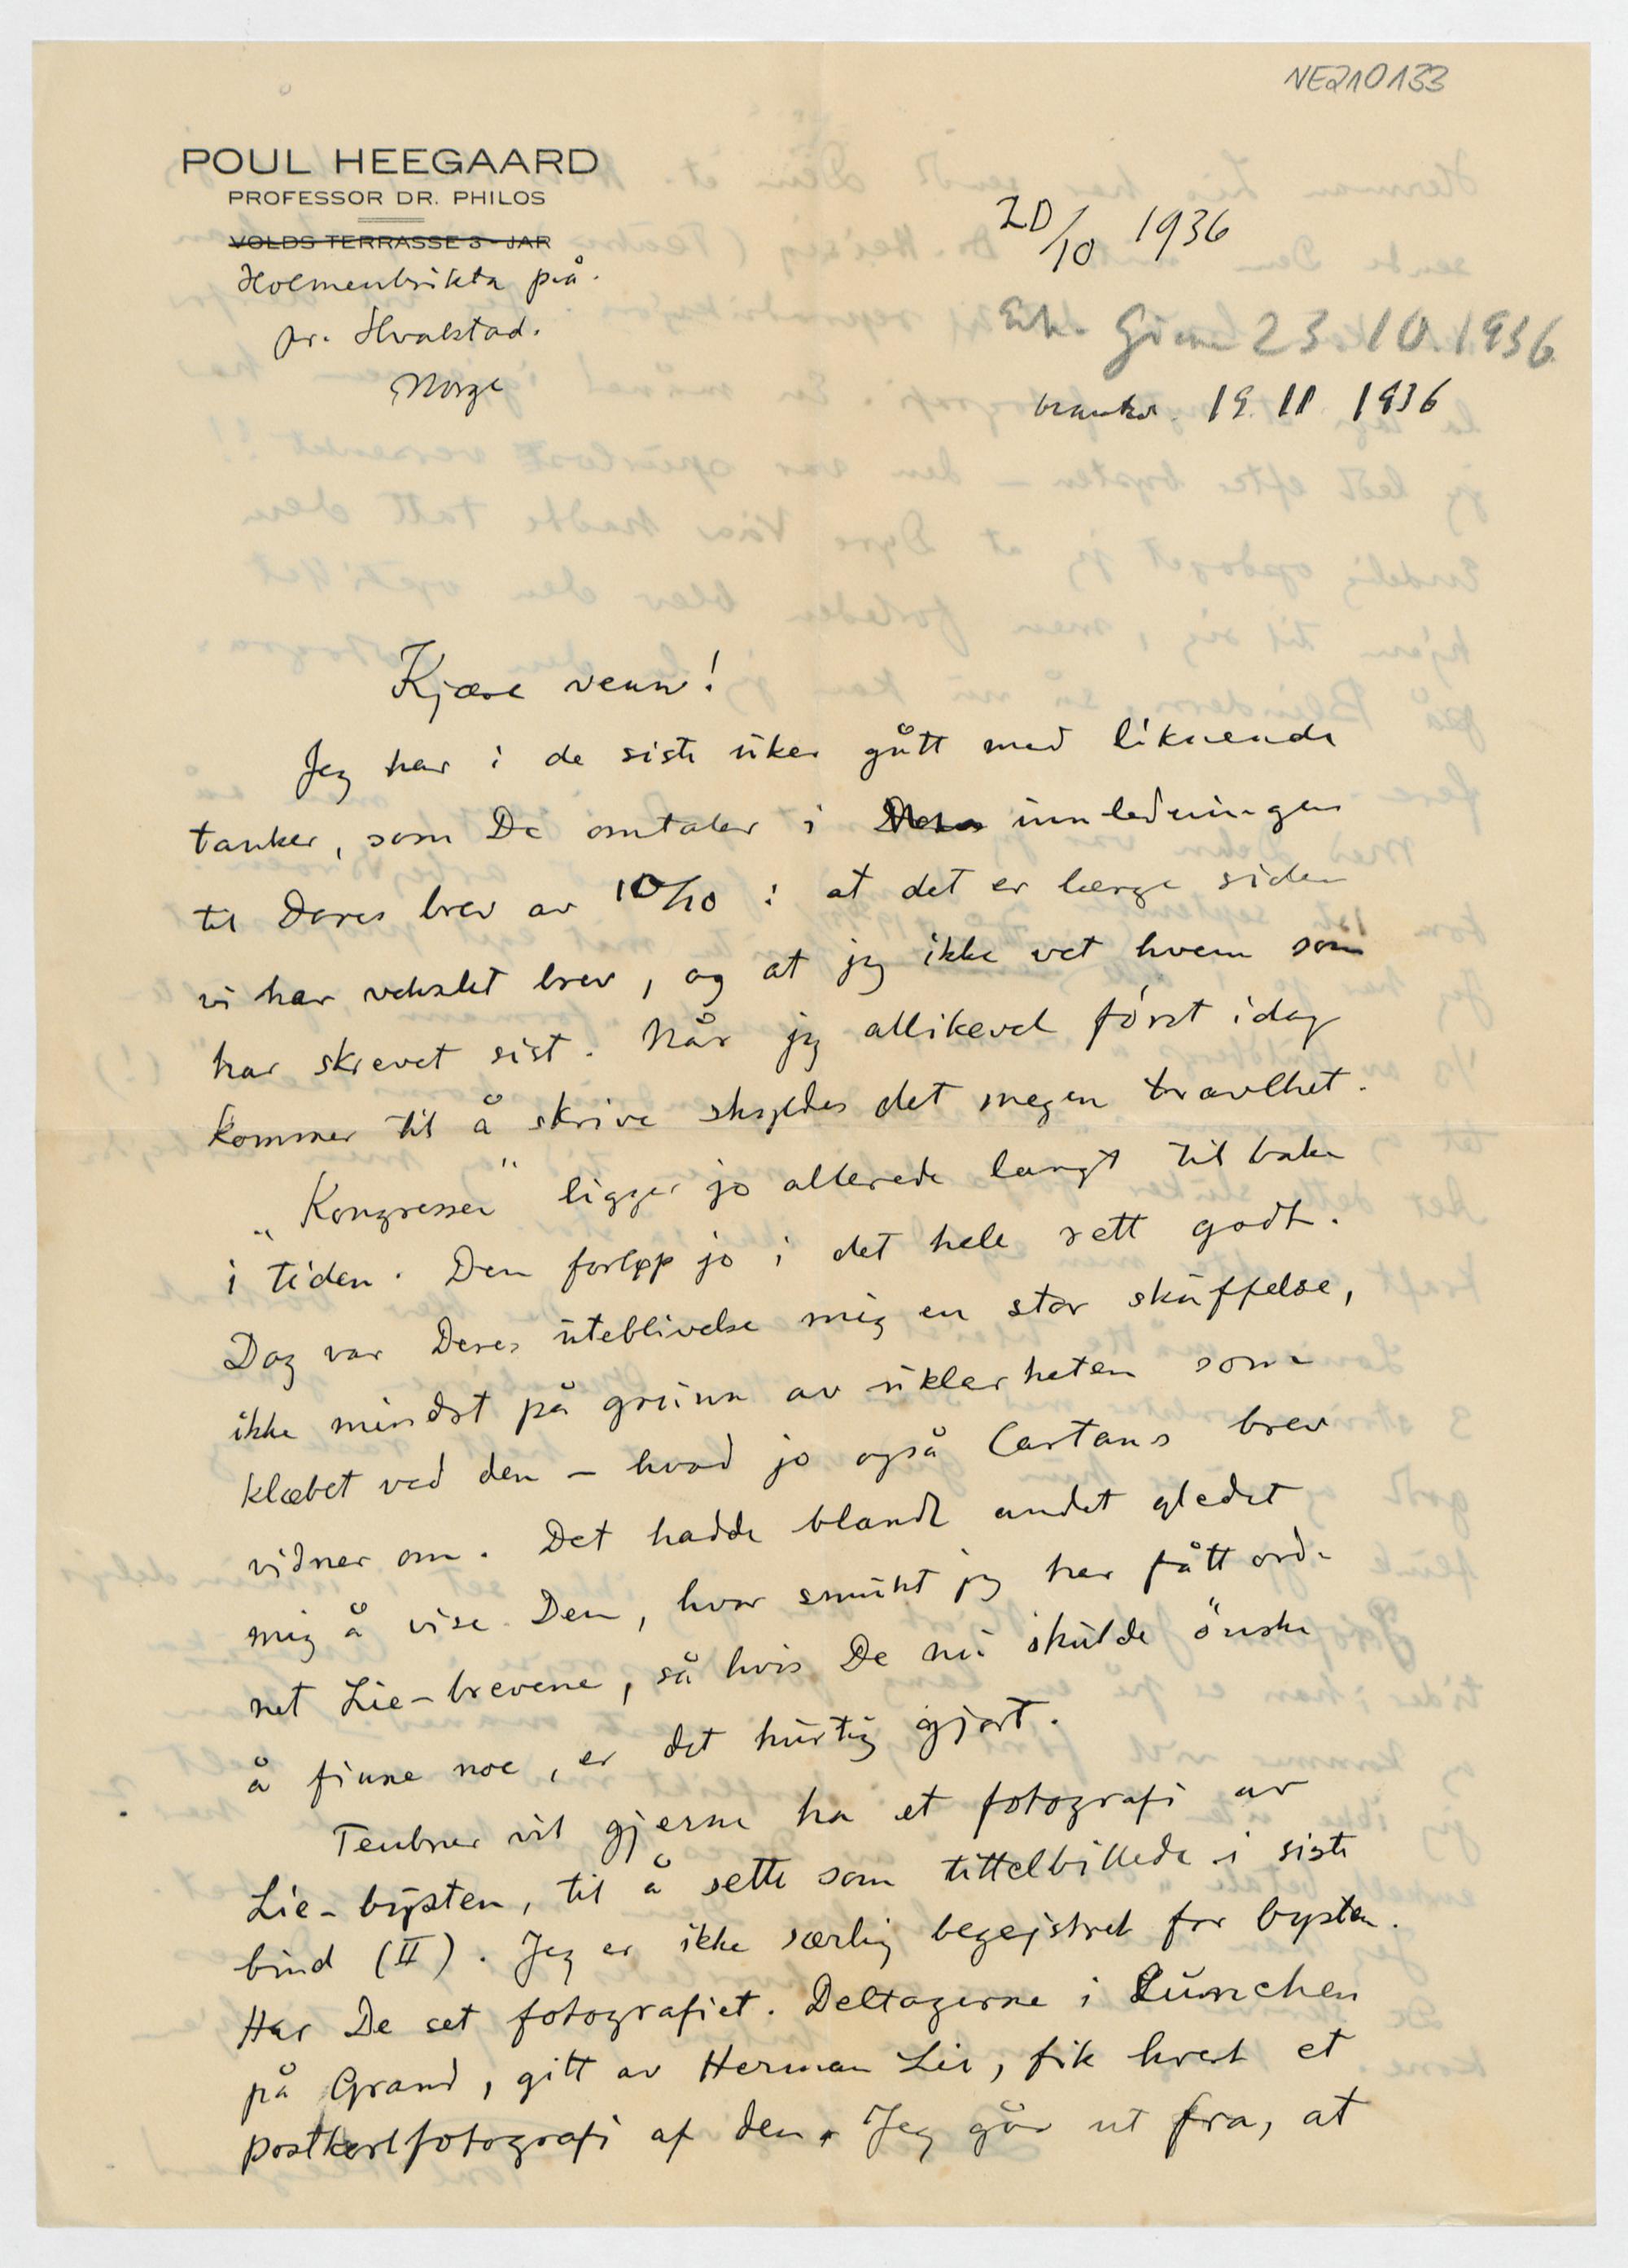 NE210133
POUL HEEGAARD
PROFESSOR DR. PHILOS
VOLDS TERRASSE 3 - JAR
Holmenbrikta
pr. Hvalstad.
Norge
20/10 1936
Erh. 23 10. 1936
19. 11 1936
Kjære venn!
Jeg har i de siste uker gått med liknende
tanker, som De omtaler i innledningen
til Deres brev av 10/10 : at det er længe siden
vi har vekslet brev, og at jeg ikke vet hvem som
har skrevet sist. Når jeg allikevel først idag
kommer til å skrive skyldes det megen travlhet.
"Kongressen" ligger jo allerede langt tilbake
i tiden. Den forløp jo i det hele rett godt.
Dog var Deres uteblivelse mig en stor skuffelse,
ikke mindst på grunn av uklarheten som
klæbet ved den – hvad jo også Cartans brev
vidner om. Det hadde blandt andet gledet
mig å vise Dem, hvor smukt jeg har fått ord-
net Lie-brevene, så hvis De nu skulde önske
å finne noe, er det hurtig gjort.
Teubner vil gjerne ha et fotografi av
Lie-bysten, til å sette som tittelbillede i siste
bind (II). Jeg er ikke særlig begejstret for bysten.
Har De set fotografiet. Deltagerne i Lunchen
på Grand, gitt av Herman Lie, fik hvert et
postkortfotografi af den. Jeg går ut fra, at